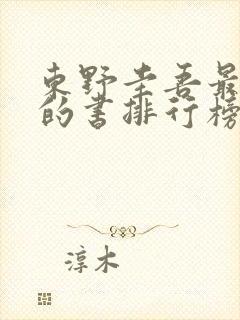 東野圭吾最
的书排行榜
淳木